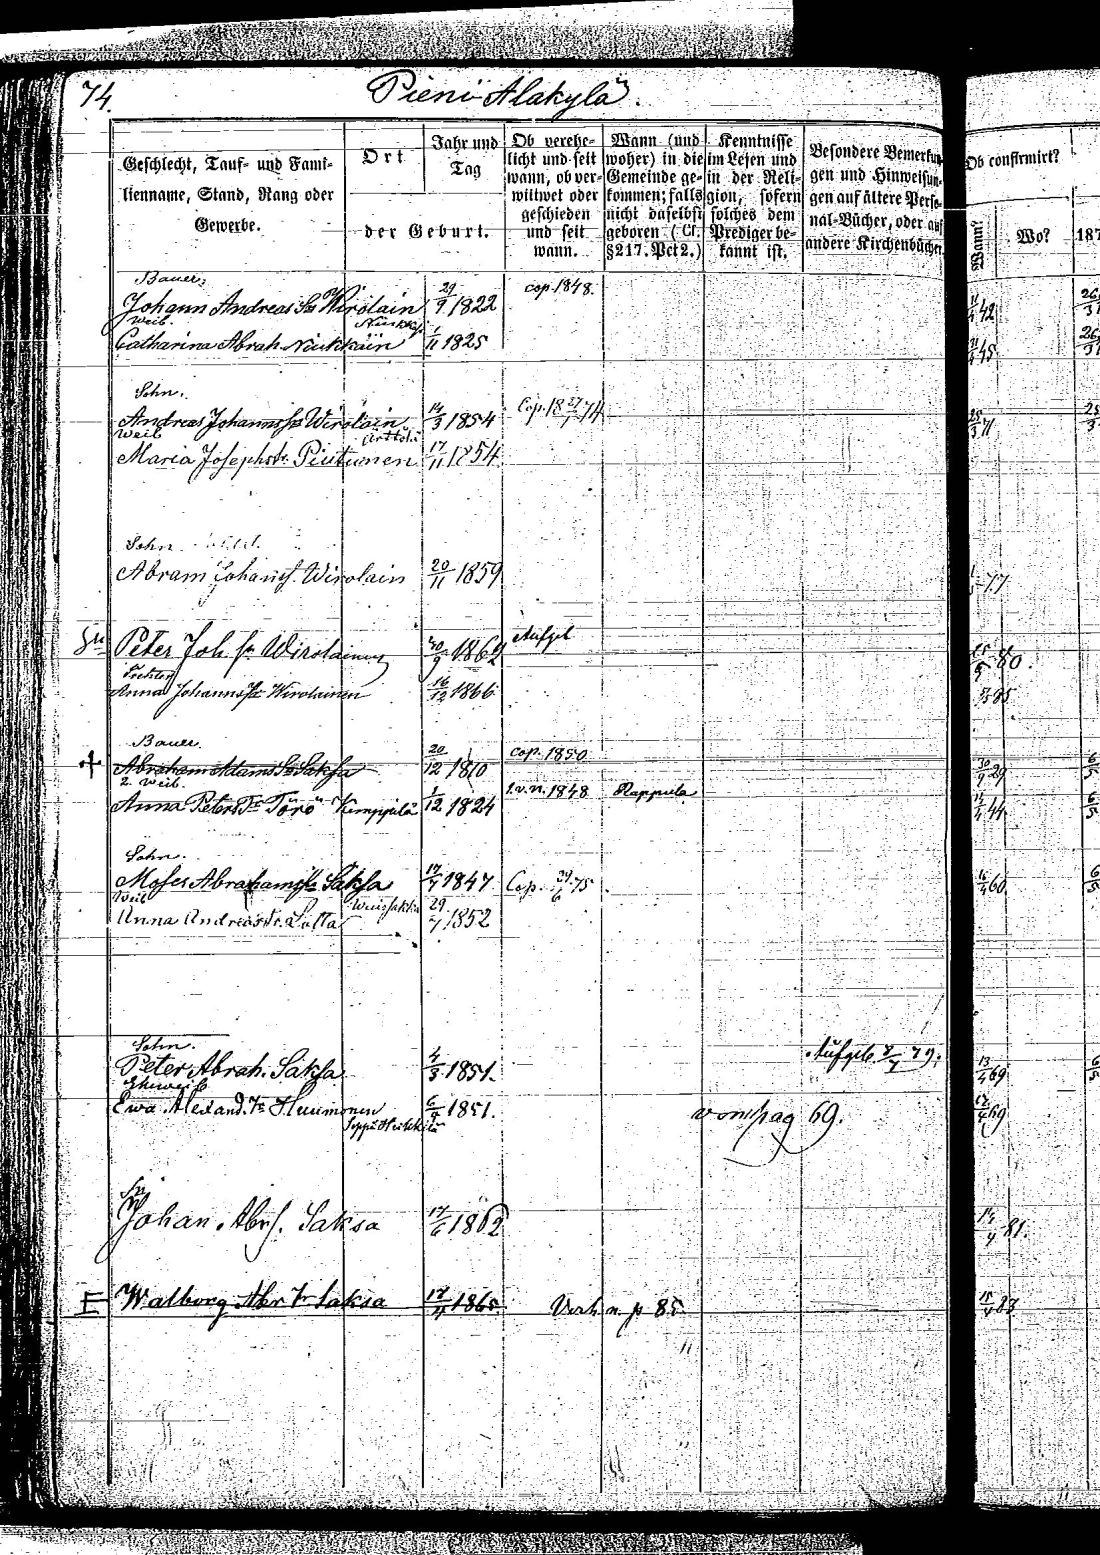 74.
Pieni Alakylä.
Geschlecht, Tauf- und Fami-
lienname, Stand, Rang oder
Gewerbe.
Ort
der Geburt.
Jahr und
Tag
Ob verehe-
licht und seit
wann, ob ver-
wittwet oder
geschieden
und seit
wann.
Wann (und
woher) in die
Gemeinde ge-
kommen; falls
nicht daselbst
geboren (Cf.
§217. Pct 2.)
Kenntnisse
im Lesen und
in der Reli-
gion, sofern
solches dem
Prediger be-
kannt ist.
Besondere Bemerkun-
gen und Hinweisun-
gen auf ältere Perso-
nal-Bücher, oder auf
andere Kirchenbücher.
Ob confirmirt?
Wann?
Wo?
187
Bauer.
Johann Andreas Sn Wirolain 29/9 1822 cop. 1848. 42
Weib.
Catharina Abrah. Näukkäin 1/11 1825 45
Sohn.
Andreas Johanns Sn Wirolain 14/3 1854 Cop. 18 27/1 74 25/3 71
Weib
Maria Josephstr. Piutunen 17/11 1854
Sohn
Abram Johans. Wirolain 20/11 1859 77
Sn Peter Joh. sn Wirolainen 30/9 1862 Aufgeb 80.
Tochter
Anna Johanns tr Wirolainen 16/12 1866 85
Bauer.
Abraham Adams Sn Saksa 20/12 1810 cop. 1850 30/9 29
2. Weib.
Anna Peters Tr Törö Kemppilä 1/12 1824 1848 Rappula 44
Sohn.
Moses Abrahams Sn Saksa 17/7 1847 Cop. 29/6 75 60
Weib
Anna Andreas tr. Lotta 29/7 1852
Sohn.
Peter Abrah. Saksa 4/3 1851. Aufgeb. 79. 13/4 69
Eheweib
Ewa Alexand. Tr Huumonen 6/9 1851. von pag 69. 69
Seppä Heikkilä
Sn
Johan Abrs. Saksa 17/6 1862 81.
E Walborg Abr tr Saksa 18/4 1865 Verh. n. p 85. 83